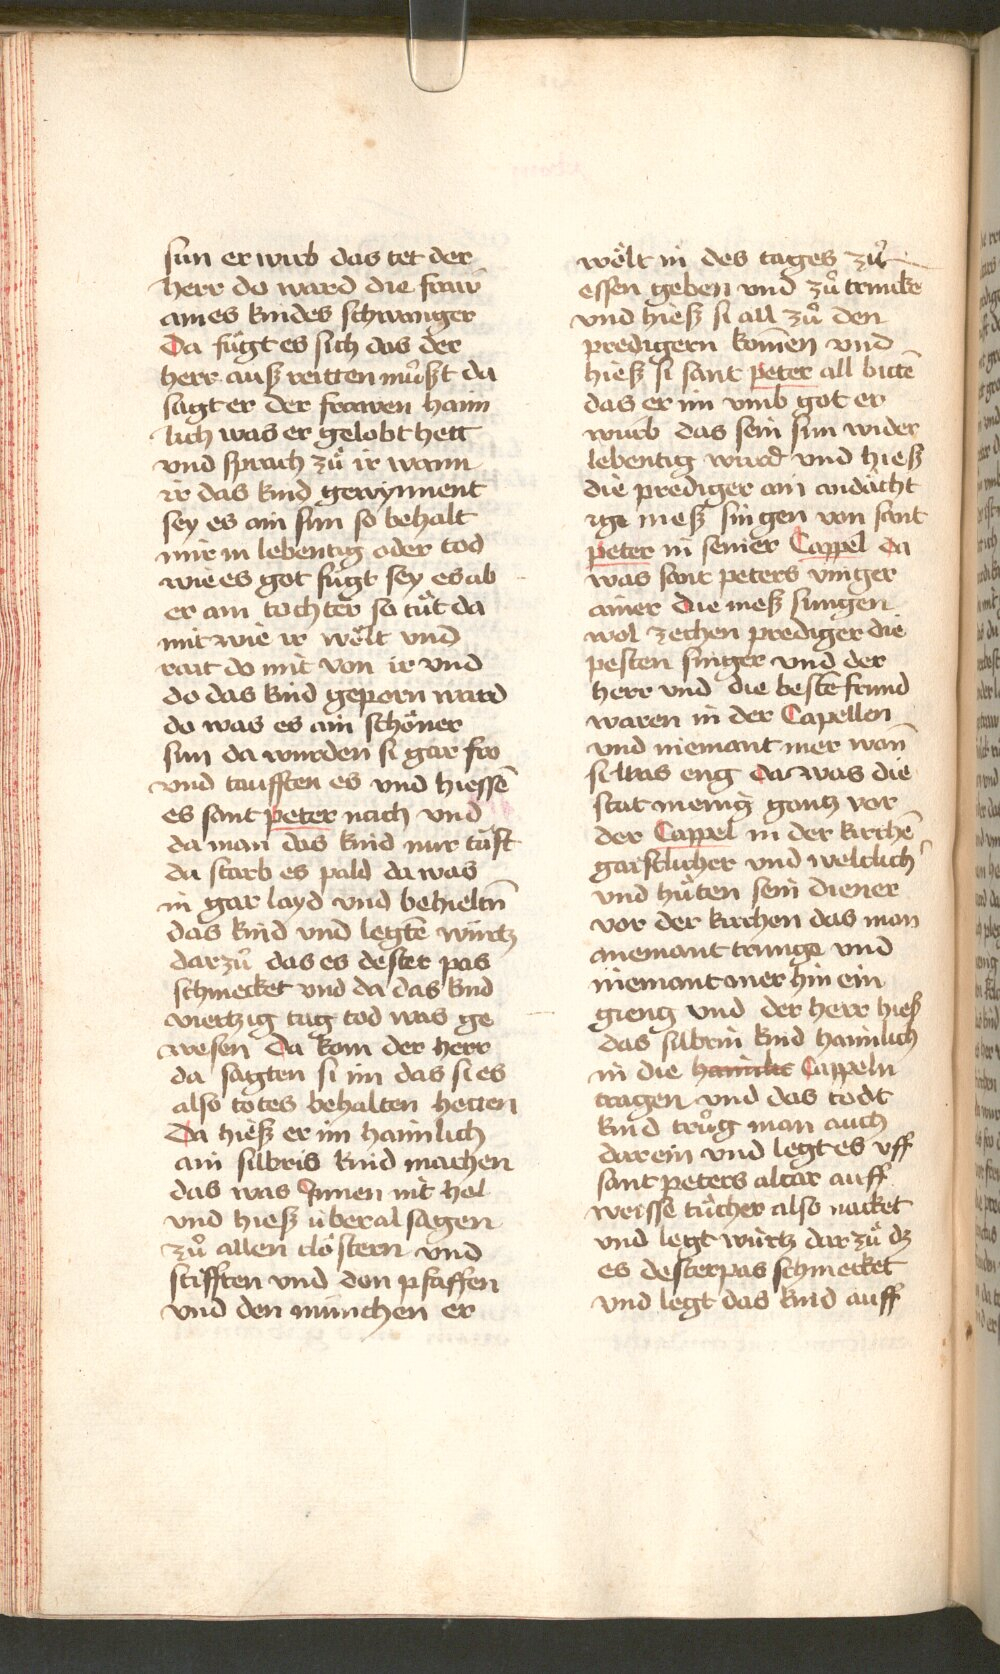 sun er wurb das tet der
herr do ward die fraw̄
aines kindes schwanger
Da fügt es sich das der
herr ausz reitten můszt da
sagt er der frawen haim
lich was er gelobt hett
vnd sprach zů ir wann
ir das kind gewynnent
sey es ain sun so behalt
mir in lebentig oder tod
wie es got fügt sey es ab
er ain tochter so tüt da
mit wie ir wölt vnd
rait do mit von ir vnd
do das kind geporn ward
do was es ain schöner
sun da wurden si gar fro
vnd taufften es vnd hiessē
es sant peter nach vnd
da man das kind nur täft
da starb es pald da was
in gar layd vnd behieltn̄
das kind vnd legtē würtz
darzů das es dester pas
schmecket vnd da das kind
viertzig tag tod was ge
wesen Da kom der herr
da sagten si im das si es
also totes behalten hetten
Da hiesz er im haimlich
ain silbris kind machen
das was Innen nit hol
vnd hiesz überal sagen
zů allen clöstern vnd
stifften vnd den pfaffen
vnd den münchen er
wölt in des tages zů
essen geben vnd zů trincke
vnd hiesz si all zů den
predigern kom̄en vnd
hiesz si sant peter all bittē
das er im vmb got er
wurb das sein sun wider
lebentig wurd vnd hiesz
die prediger ain andächt
ige mesz singen von sant
peter in seiner Cappel da
was sant peters vinger
ainer die mesz sungen
wol zechen prediger die
pesten singer vnd der
herr vnd die beste frund
waren in der Capellen
vnd niemant mer wan̄
si was eng da was die
stat menig gantz vor
der Cappel in der kirchē
gaistlicher vnd weltlich
vnd hüten sein diener
vor der kirchen das man
niemant trunge vnd
niemant mer hin ein
gieng vnd der herr hiesz
das silbrin kind haimlich
in die haimlic Cappeln
tragen vnd das todt
kind trůg man auch
darein vnd legt es vff
sant peters altar auff
weisse tücher also nacket
vnd legt würtz dar zů dz
es dester pas schmecket
vnd legt das kind auff